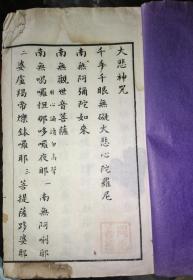 大悲神咒
千手千眼無礙大悲心陀羅尼
南無阿彌陀如來
南無觀世音菩薩
南無喝囉怛那哆囉夜耶 一 南無阿唎耶
二 婆盧羯帝爍鉢囉耶 三 菩提薩埵婆耶